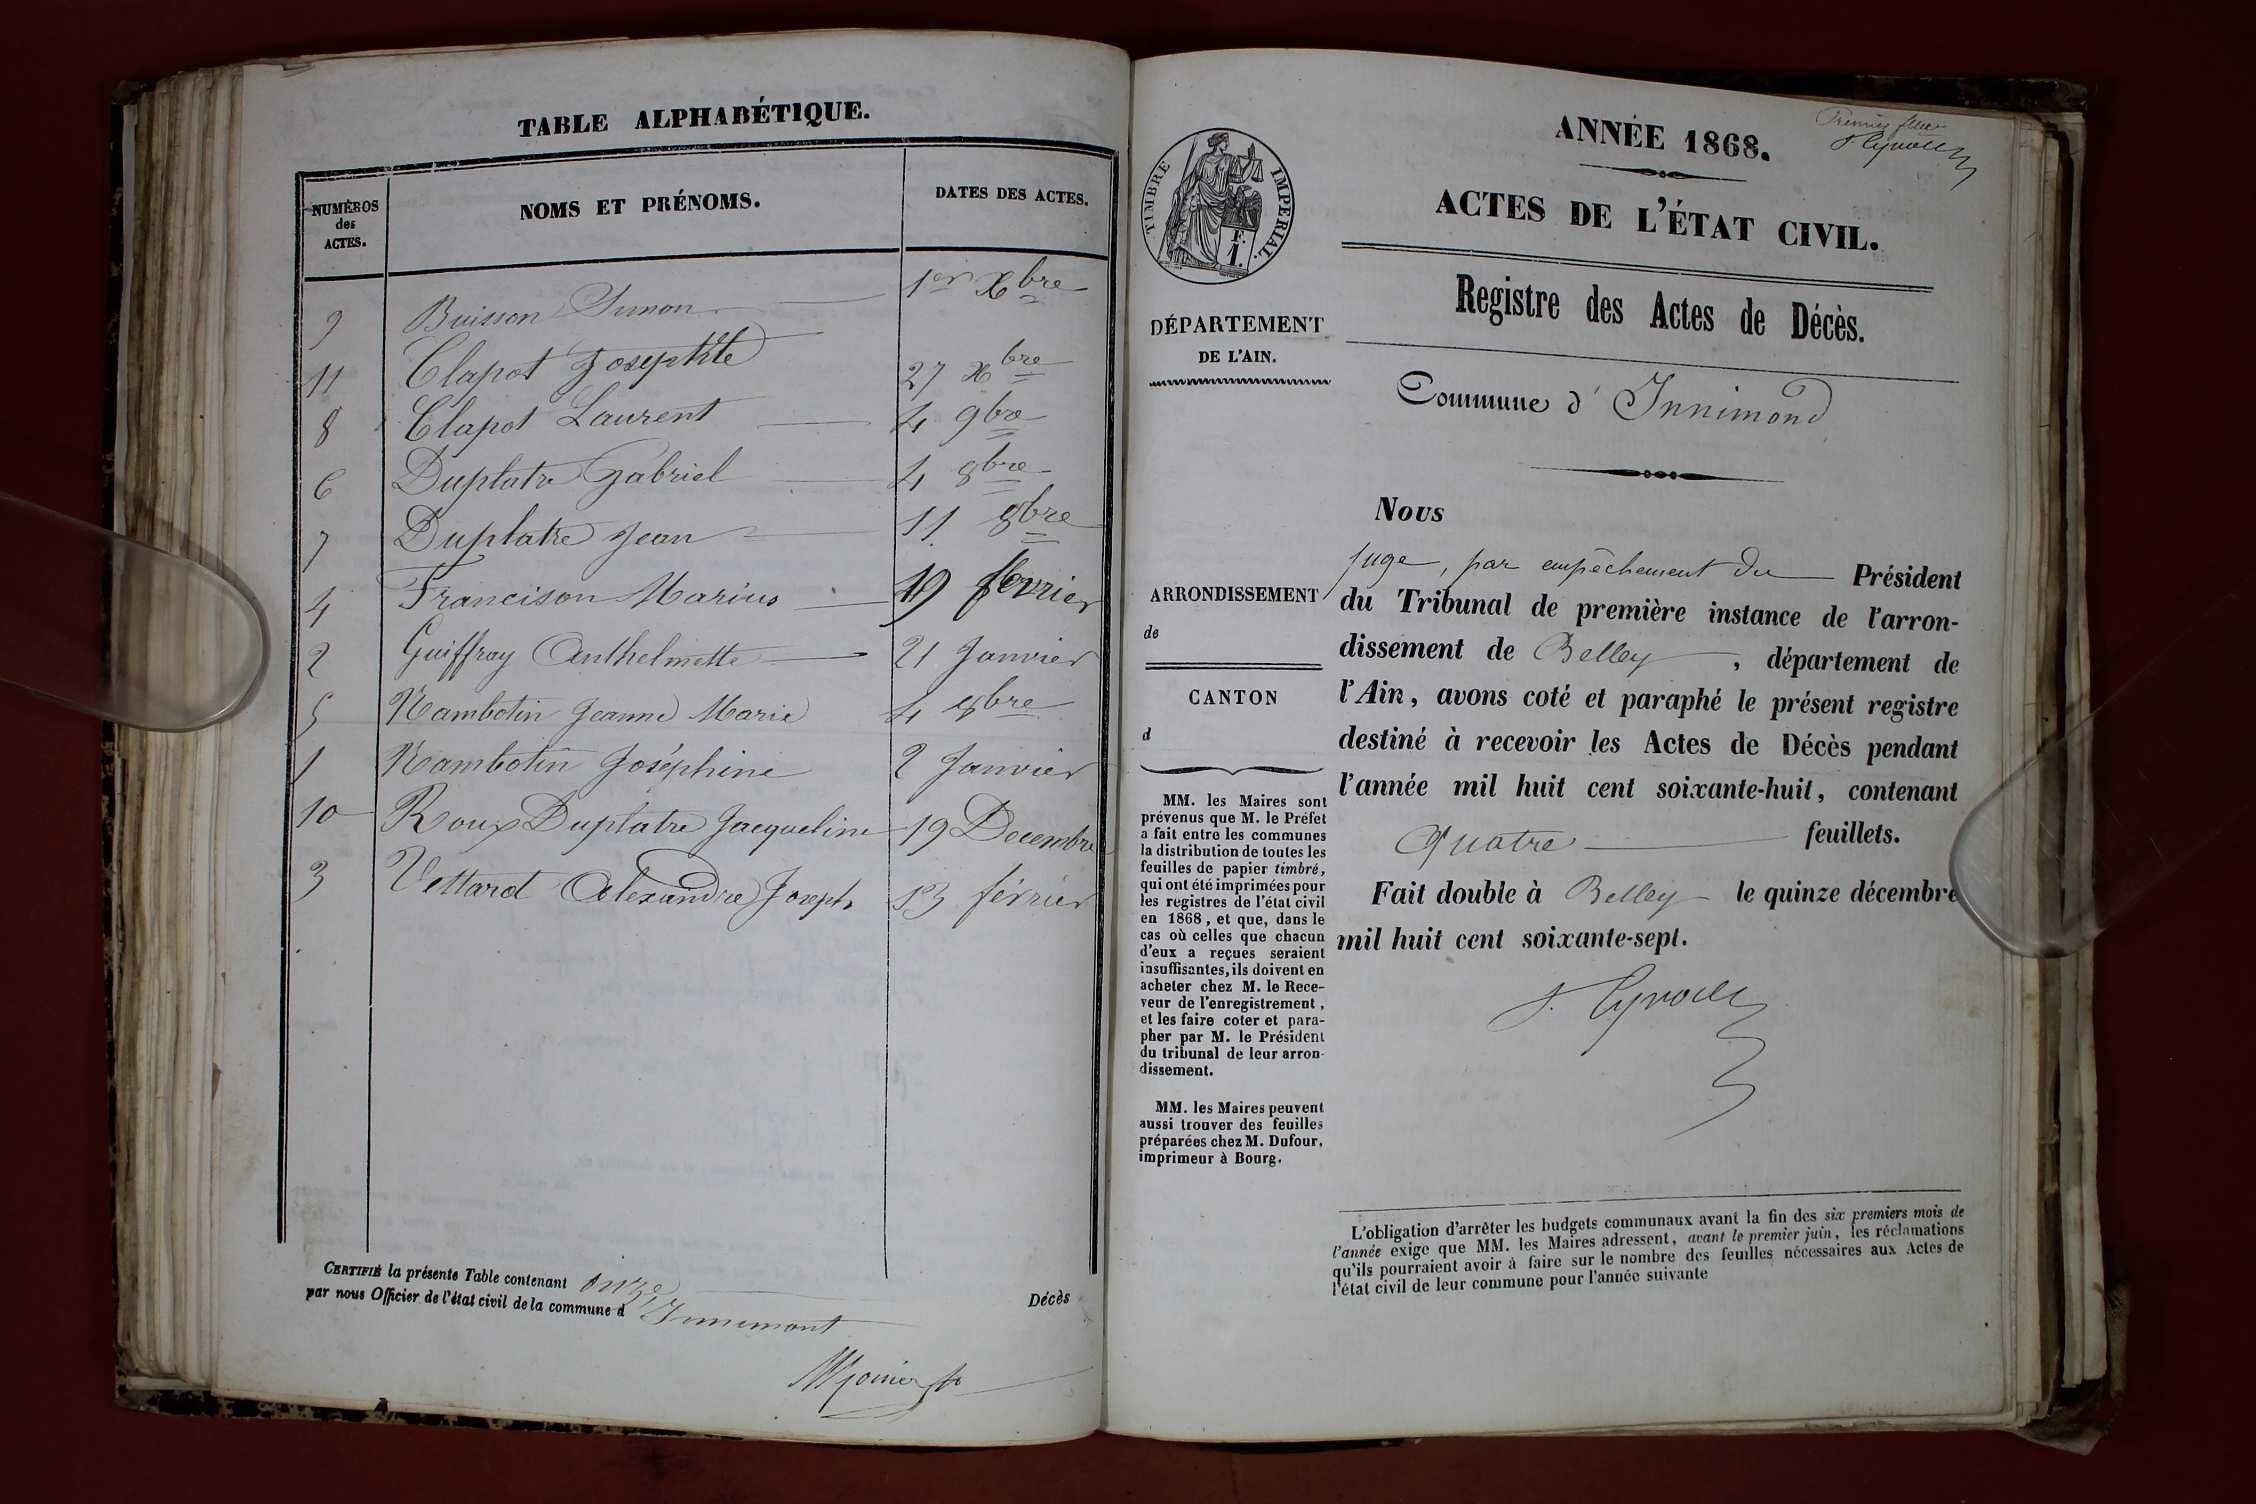 TABLE ALPHABÉTIQUE.
NUMÉROS
des
ACTES.
NOMS ET PRÉNOMS.
DATES DES ACTES.
9 Buisson Simon 1er Xbre
11 Clapot Josephte 27 Xbre
8 Clapot Laurent 4 9bre
6 Duplatre Gabriel 4 8bre
7 Duplatre Jean 11 8bre
4 Francison Marius 19 fevrier
2 Guiffray Anthelmette 21 Janvier
5 Nambotin Jeanne Marie 4
1 Nambotin Joséphine 2 Janvier
10 Roux Duplatre Jacqueline 19 Decembre
3 Vettard Alexandre Joseph 13 février
CERTIFIÉ la présente Table contenant onze Décès
par nous Officier de l'état civil de la commune d'Innimont
Premier
ANNÉE 1868.
ACTES DE L'ÉTAT CIVIL.
Registre des Actes de Décès.
TIMBRE IMPÉRIAL.
F.
1.
DÉPARTEMENT
DE L'AIN.
ARRONDISSEMENT
de
CANTON
d
MM. les Maires sont
prévenus que M. le Préfet
a fait entre les communes
la distribution de toutes les
feuilles de papier timbré,
qui ont été imprimées pour
les registres de l'état civil
en 1868, et que, dans le
cas où celles que chacun
d'eux a reçues seraient
insuffisantes, ils doivent en
acheter chez M. le Rece-
veur de l'enregistrement,
et les faire coter et para-
pher par M. le Président
du tribunal de leur arron-
dissement.
MM. les Maires peuvent
aussi trouver des feuilles
préparées chez M. Dufour,
imprimeur à Bourg.
Commune d'Innimond
Nous
juge, par empêchement du Président
du Tribunal de première instance de l'arron-
dissement de Belley, département de
l'Ain, avons coté et paraphé le présent registre
destiné à recevoir les Actes de Décès pendant
l'année mil huit cent soixante-huit, contenant
quatre feuillets.
Fait double à Belley le quinze décembre
mil huit cent soixante-sept.
L'obligation d'arrêter les budgets communaux avant la fin des six premiers mois de
l'année exige que MM. les Maires adressent, avant le premier juin, les réclamations
qu'ils pourraient avoir à faire sur le nombre des feuilles nécessaires aux Actes de
l'état civil de leur commune pour l'année suivante